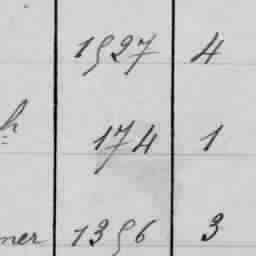 1527 4
h 174 1
ner 1356 3